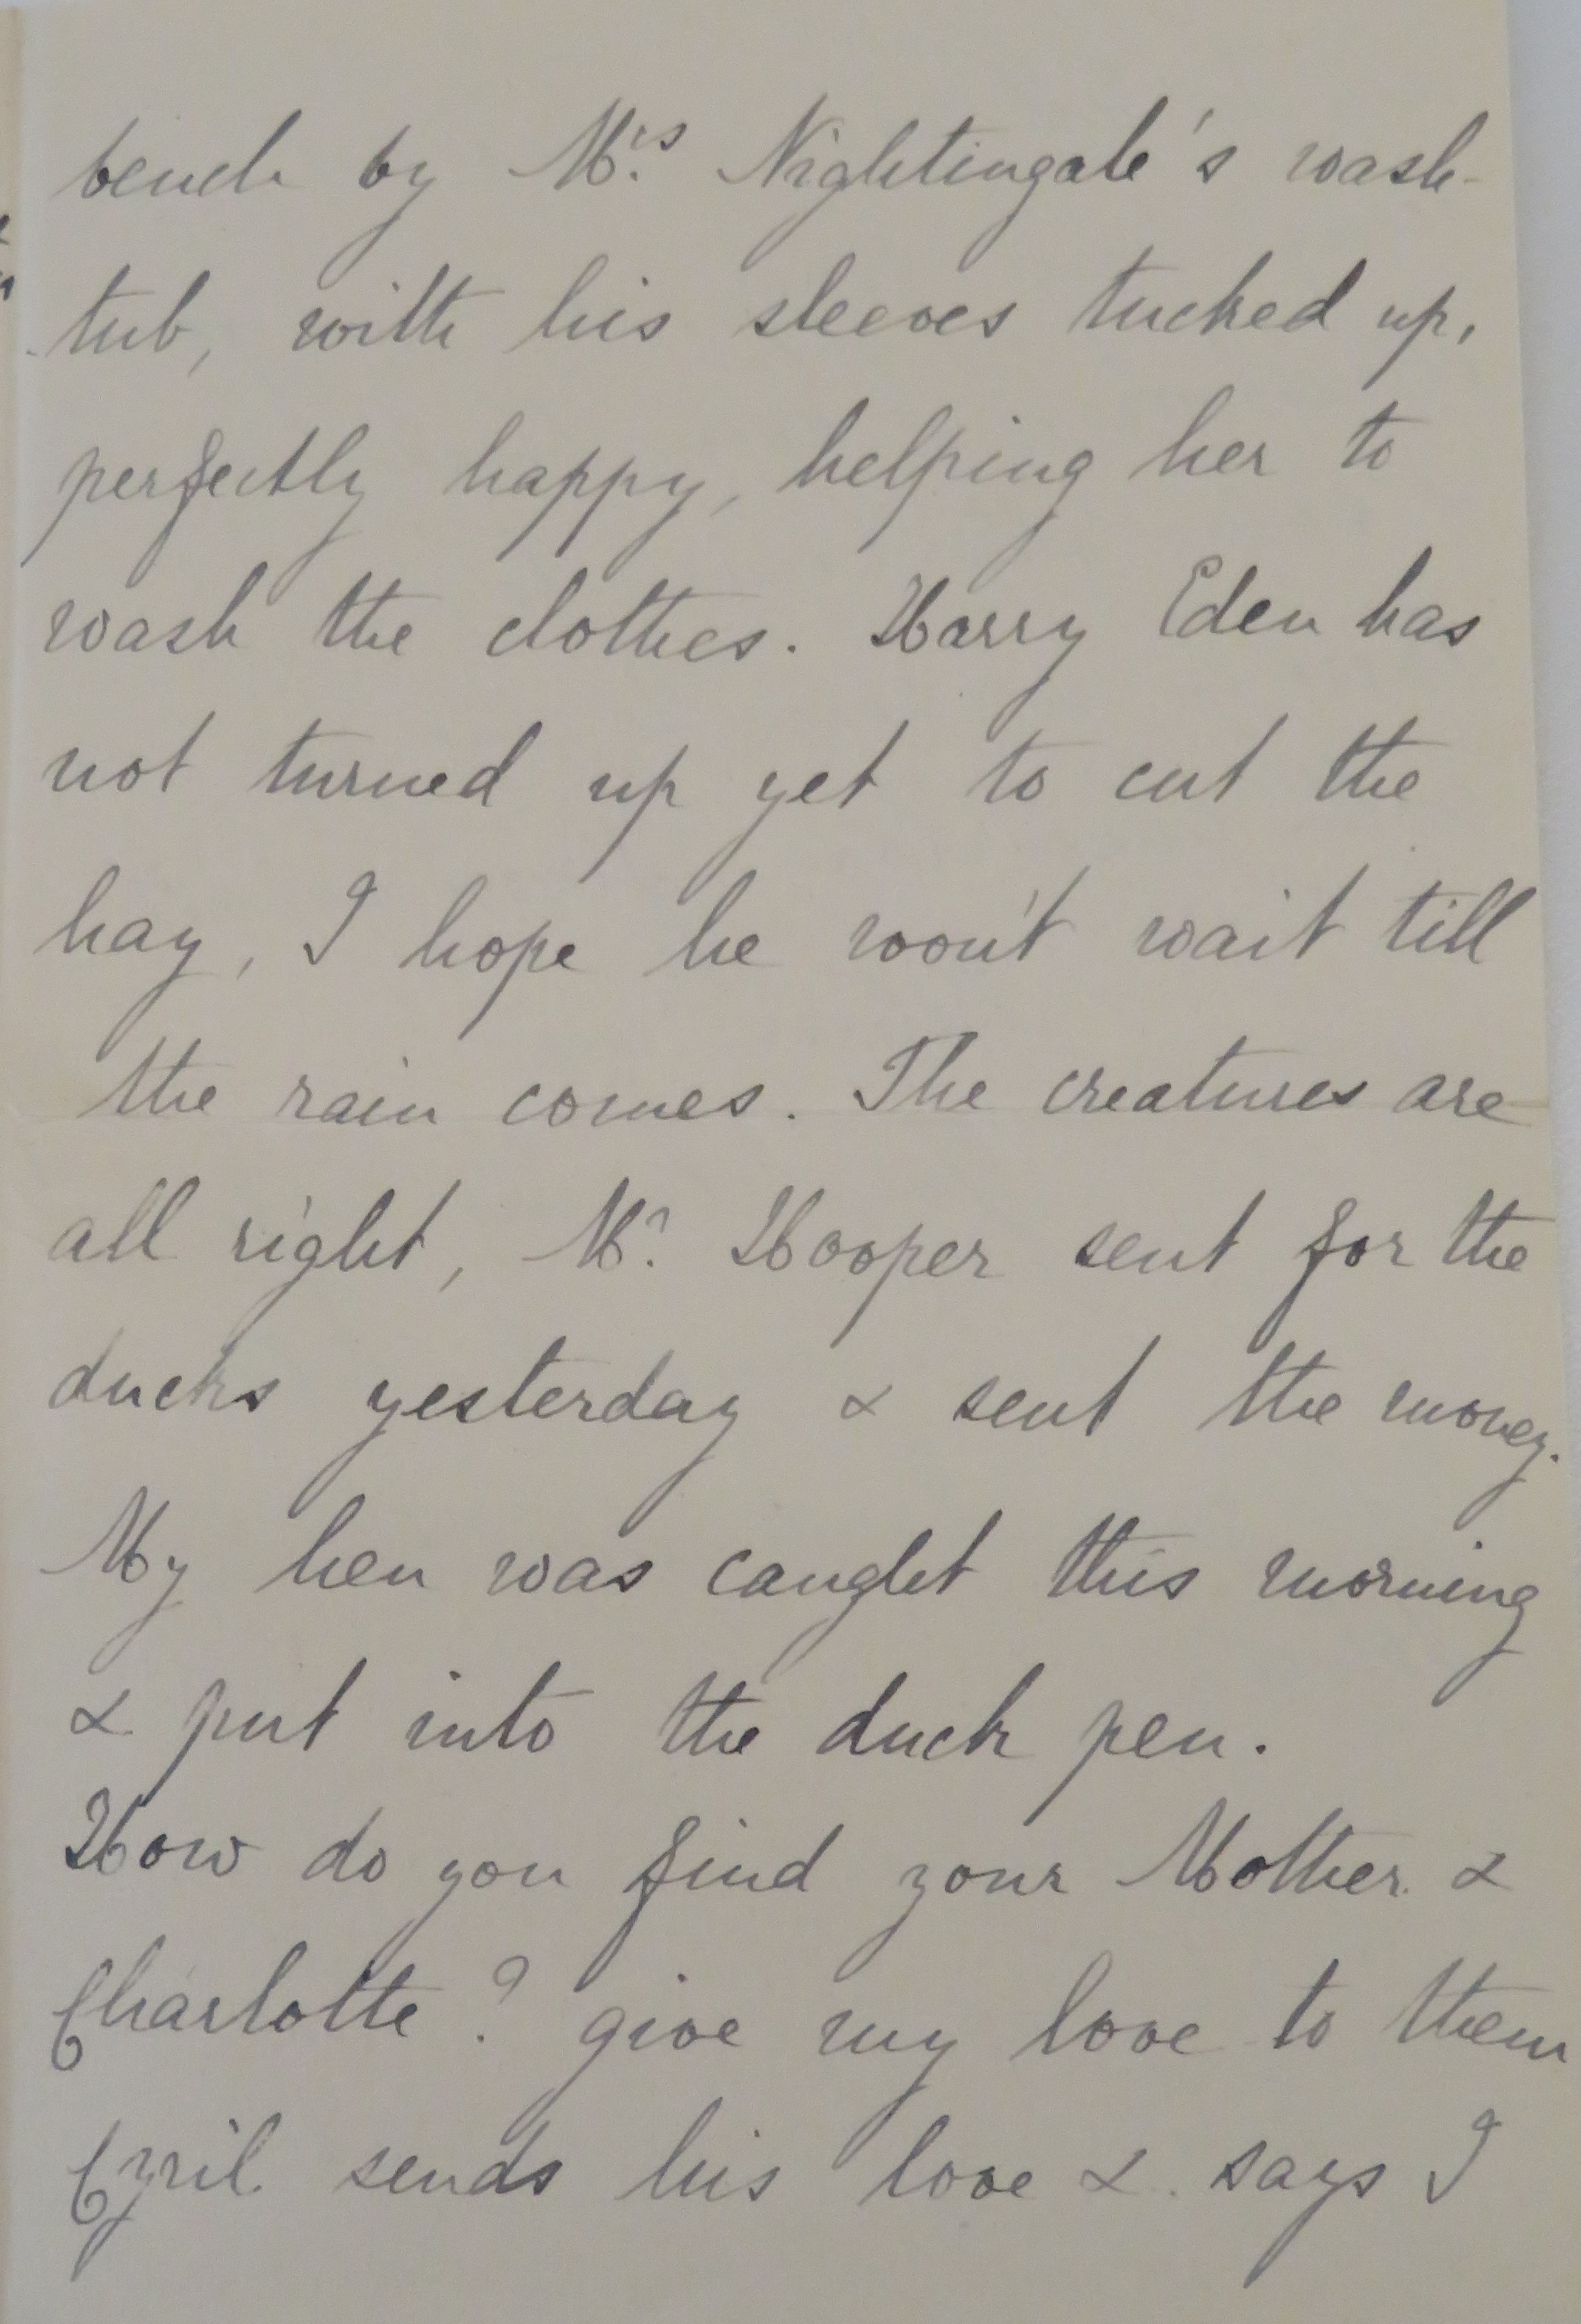 bench by Mrs. Nightingale's wash-
tub, with his sleeves tucked up,
perfectly happy, helping her to
wash the clothes. Harry Eden has
not turned up yet to cut the
hay, I hope he won't wait till
the rain comes. The creatures are
all right, Mr. Hooper sent for the
ducks yesterday & sent the money.
My hen was caught this morning
& put into the duck pen.
How do you find your Mother &
Charlotte? give my love to them
Cyril sends his love & says I